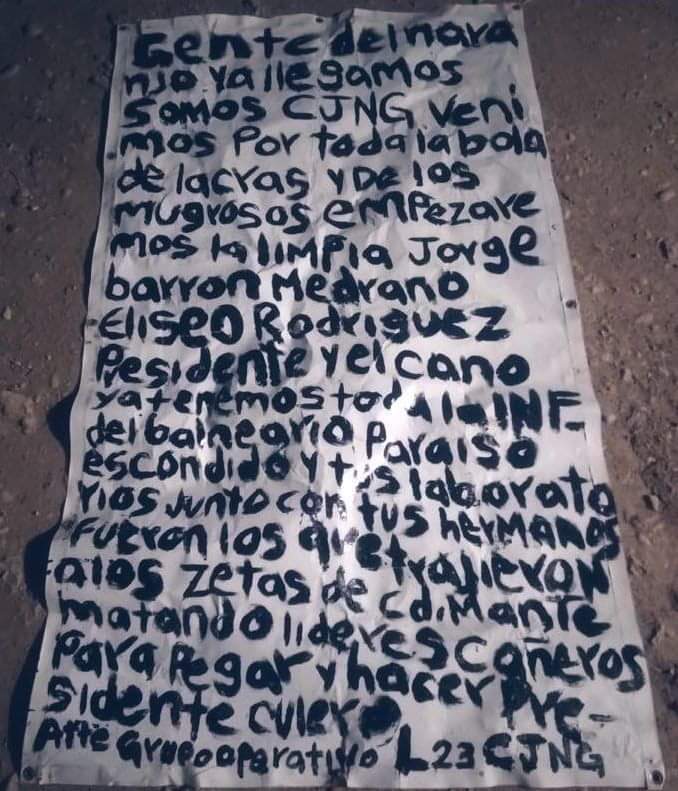 Gente del nara
njo ya llegamos
somos CJNG veni
mos por toda la bola
de lacras y De los
mugrosos empezare
mos la limpia Jorge
barron Medrano
Eliseo Rodriguez
Presidente y el cano
ya tenemos toda la INF-
del balneario Paraiso
escondido y tus laborato
rios junto con tus herMANOS
fueron los que trajieron
a los zetas de Cd.Mante
matando lideres cañeros
para Pegar y hacer Pre-
sidente culero
Atte Grupo oparativo L23 CJNG